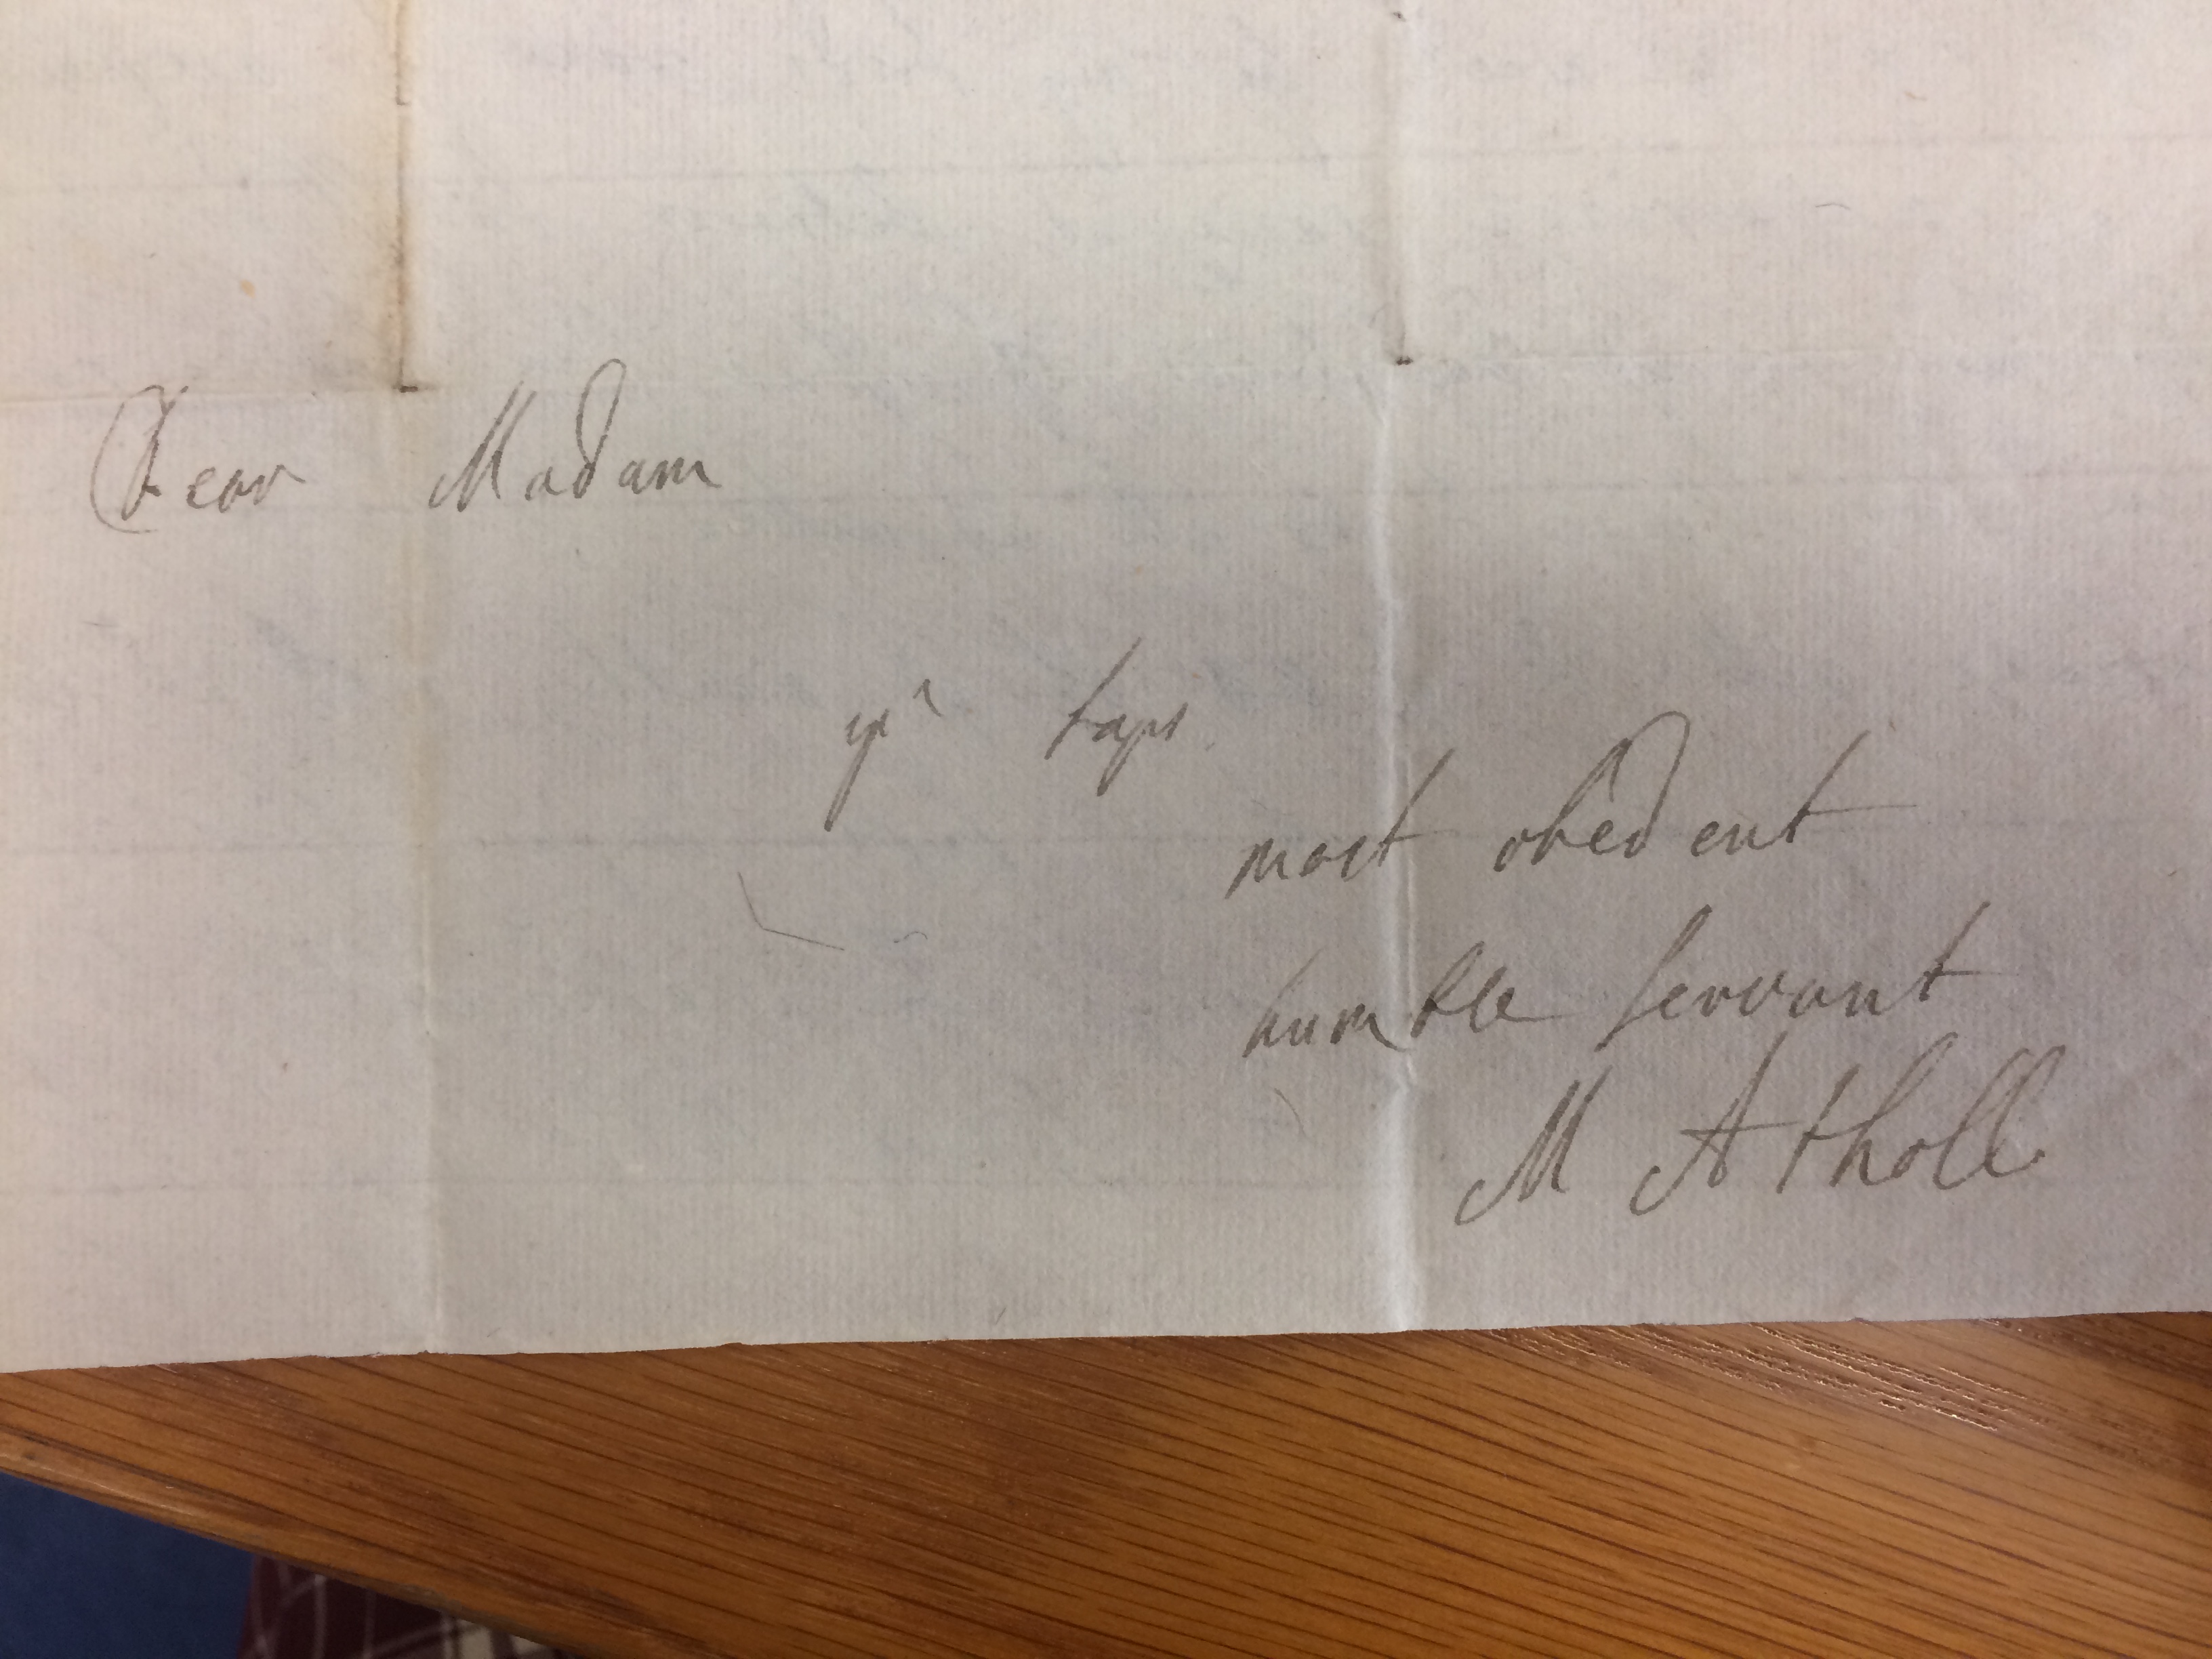 Dear Madam
yr Laps
most obedent
humble servant
M Atholl